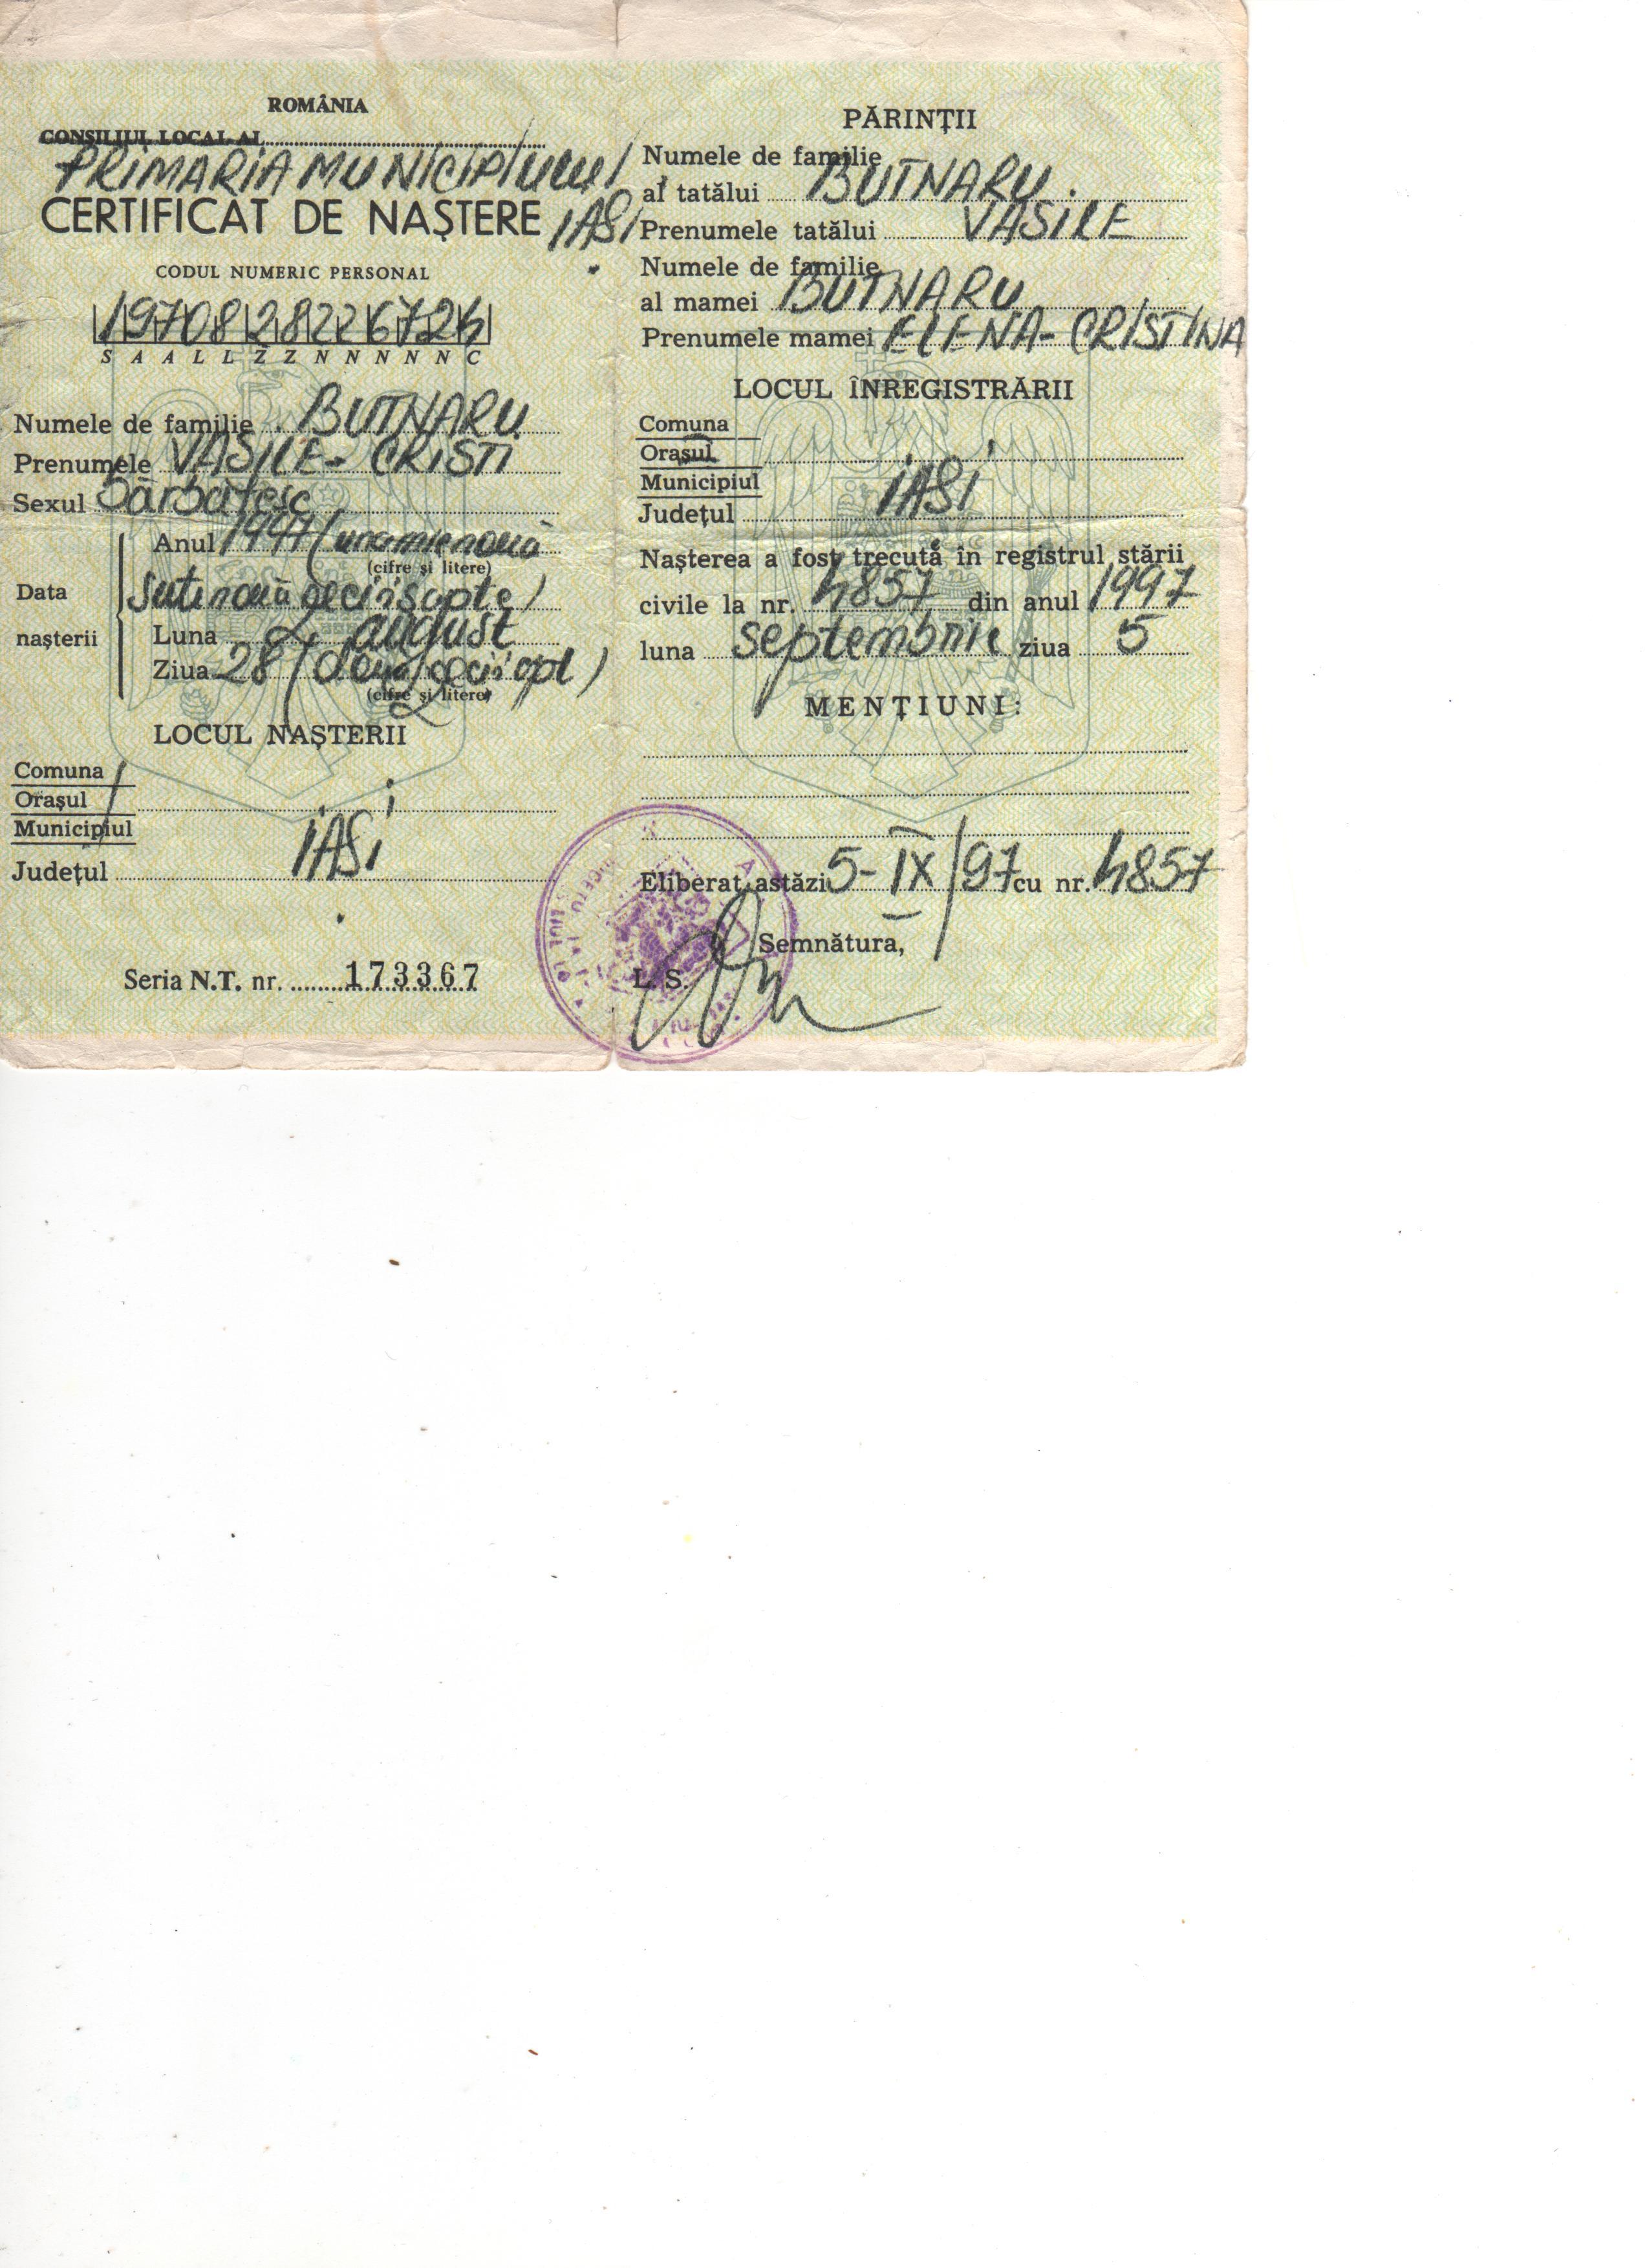 ROMÂNIA
CONSILIUL LOCAL AL
PRIMARIA MUNICIPIULUI
CERTIFICAT DE NAȘTERE IASI
CODUL NUMERIC PERSONAL
1970828226724
S A A L L Z Z N N N N N C
Numele de familie BUTNARU
Prenumele VASILE-CRISTI
Sexul bărbătesc
Anul 1997 (unamienouă
(cifre și litere)
Data
sutenouăzecișisapte)
nașterii
Luna august
Ziua 28 (douăzecișiopt)
(cifre și litere)
LOCUL NAȘTERII
Comuna
Orașul
Municipiul
IASI
Județul
Seria N.T. nr. 173367
PĂRINȚII
Numele de familie
al tatălui BUTNARU
Prenumele tatălui VASILE
Numele de familie
al mamei BUTNARU
Prenumele mamei ELENA-CRISTINA
LOCUL ÎNREGISTRĂRII
Comuna
Orașul
Municipiul
IASI
Județul
Nașterea a fost trecută în registrul stării
civile la nr. 4857 din anul 1997
luna septembrie ziua 5
MENȚIUNI:
Eliberat astăzi 5-IX/97 cu nr. 4857
Semnătura,
L. S.